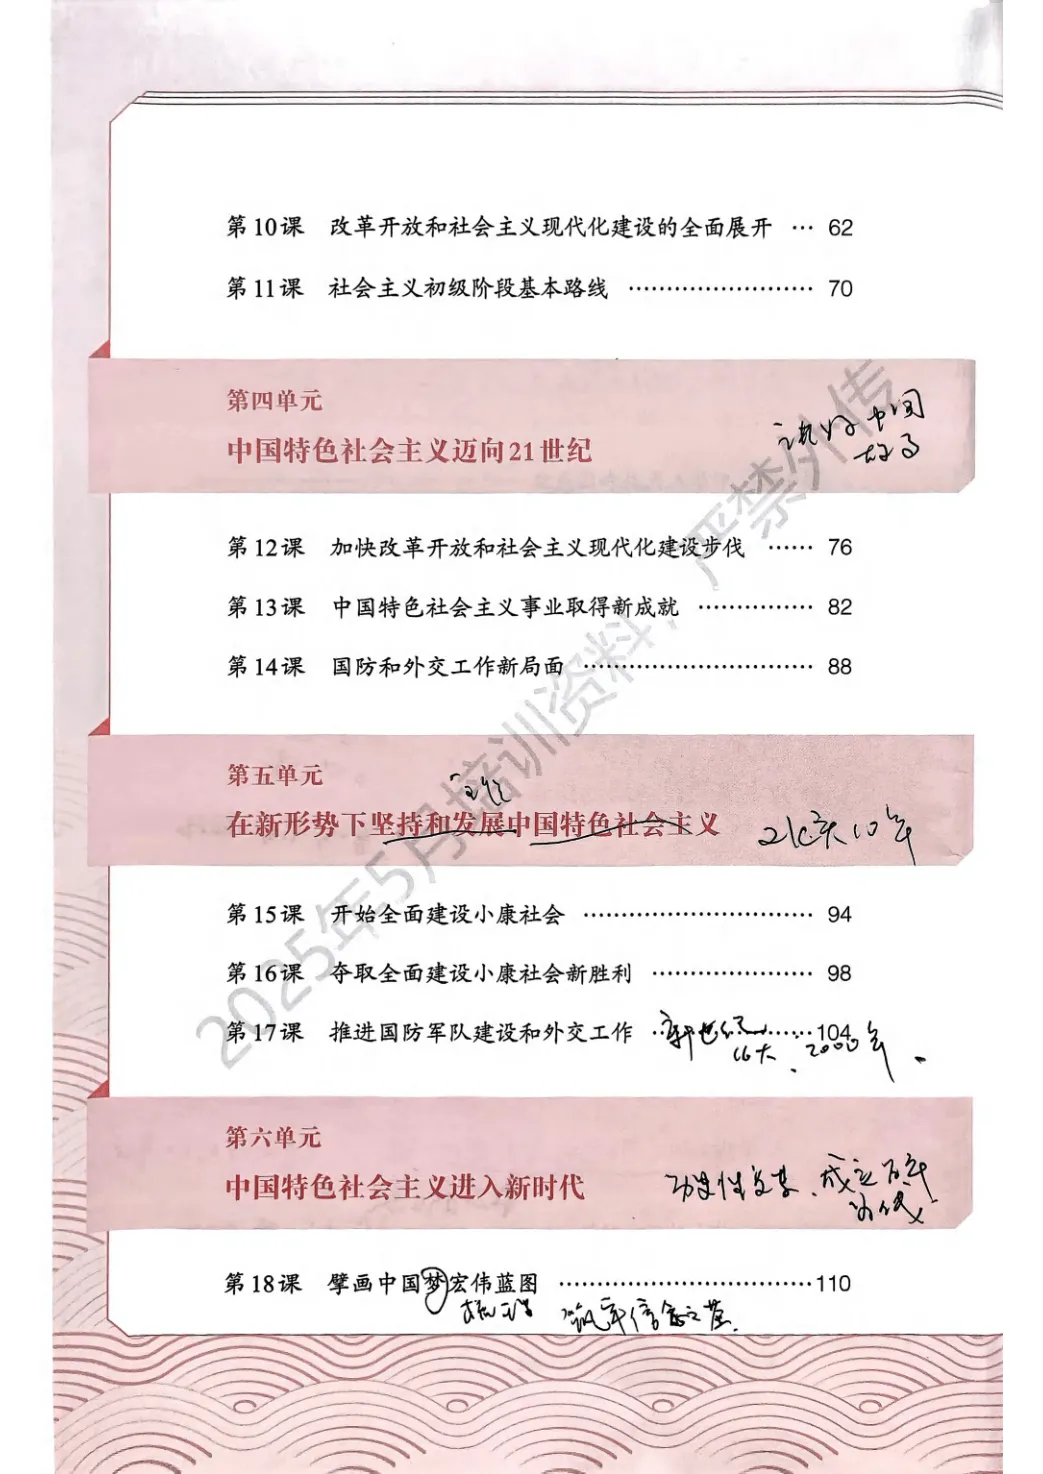 第10课 改革开放和社会主义现代化建设的全面展开 … 62
第11课 社会主义初级阶段基本路线 …………………… 70
第四单元
中国特色社会主义迈向21世纪
讲好中国
故事
第12课 加快改革开放和社会主义现代化建设步伐 …… 76
第13课 中国特色社会主义事业取得新成就 …………… 82
第14课 国防和外交工作新局面 …………………… 88
第五单元
在新形势下坚持和发展中国特色社会主义
第15课 开始全面建设小康社会 …………………… 94
第16课 夺取全面建设小康社会新胜利 …………… 98
第17课 推进国防军队建设和外交工作 …………… 104
新世纪
16大、2000年
第六单元
中国特色社会主义进入新时代
历史性变革、成立百年
第18课 擘画中国梦宏伟蓝图 …………………… 110
2025年5月培训资料,严禁外传